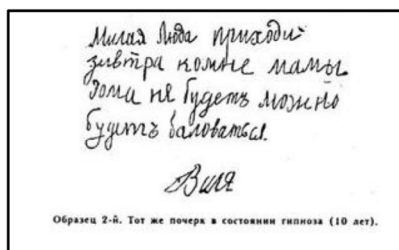 Милая Люда приходи
завтра комне мамы
дома не будетъ можно
будетъ баловаться.
Виля
Образец 2-й. Тот же почерк в состоянии гипноза (10 лет).